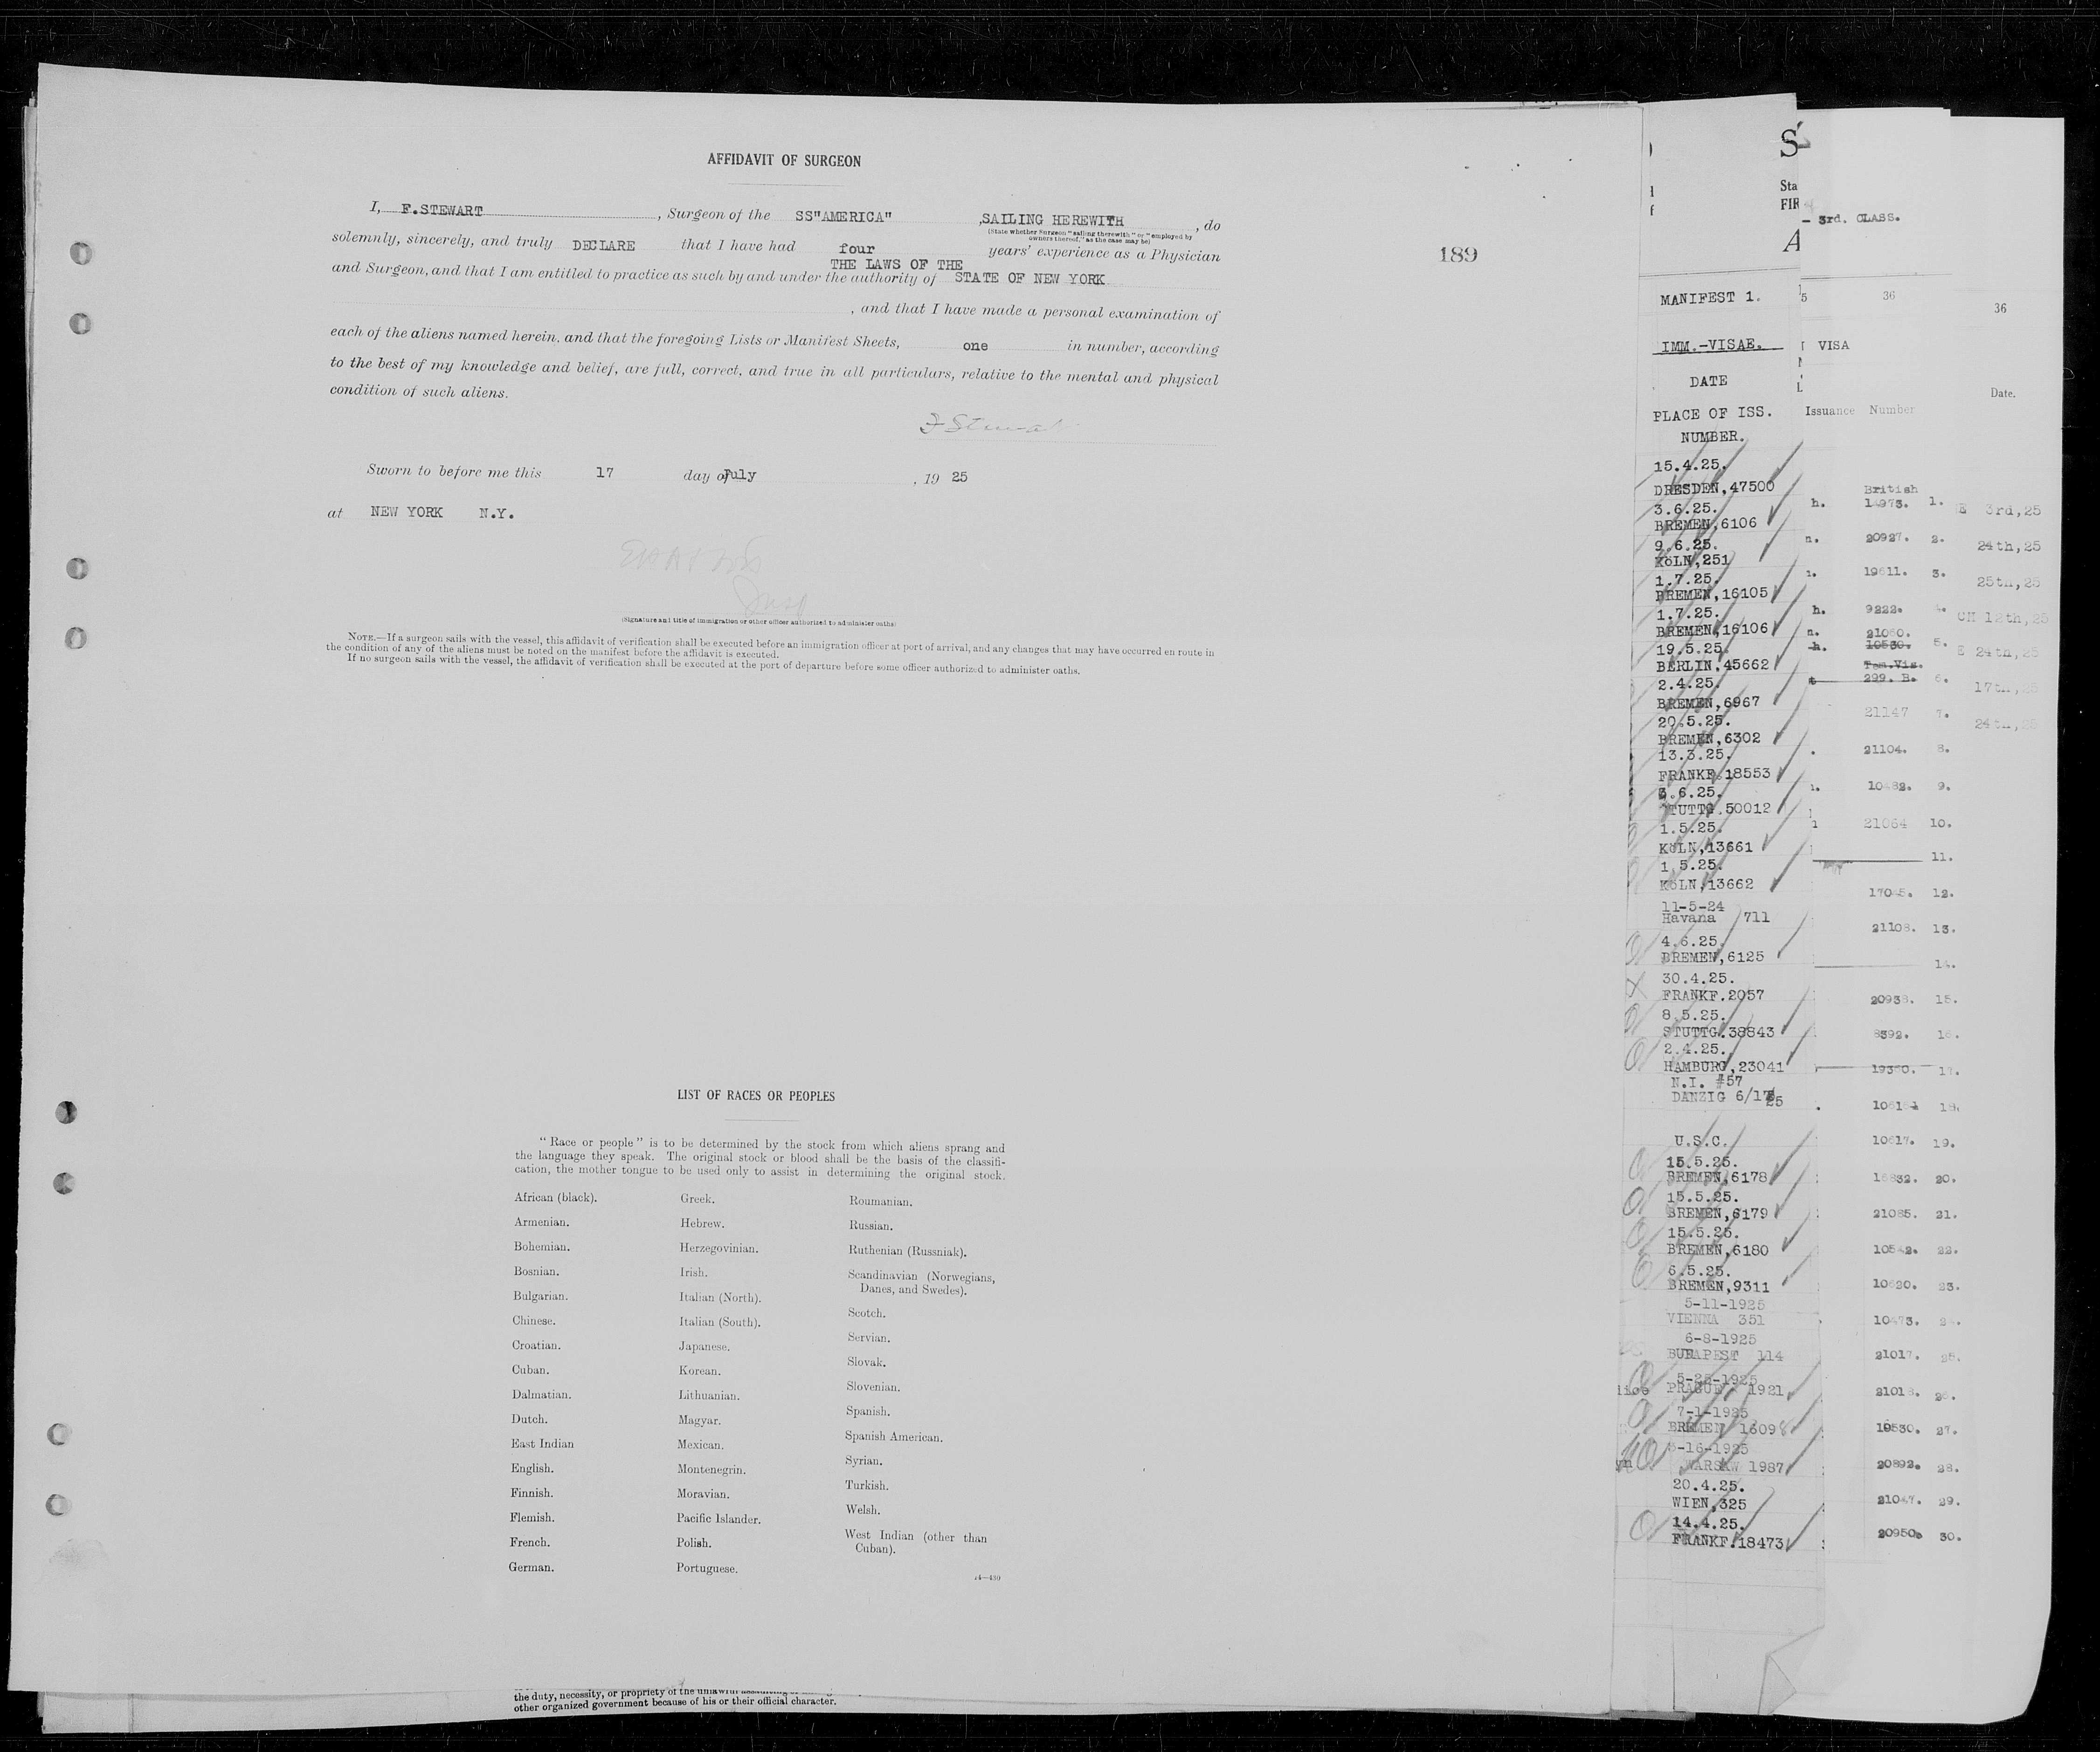 AFFIDAVIT OF SURGEON
I, F.STEWART, Surgeon of the SS"AMERICA" ,SAILING HEREWITH, do
(State whether Surgeon "sailing therewith" or "employed by
owners thereof," as the case may be)
solemnly, sincerely, and truly DECLARE that I have had four years' experience as a Physician
THE LAWS OF THE
and Surgeon, and that I am entitled to practice as such by and under the authority of STATE OF NEW YORK
, and that I have made a personal examination of
each of the aliens named herein, and that the foregoing Lists or Manifest Sheets, one in number, according
to the best of my knowledge and belief, are full, correct, and true in all particulars, relative to the mental and physical
condition of such aliens.
Sworn to before me this 17 day of July, 19 25
at NEW YORK N.Y.
(Signature and title of immigration or other officer authorized to administer oaths)
NOTE.—If a surgeon sails with the vessel, this affidavit of verification shall be executed before an immigration officer at port of arrival, and any changes that may have occurred en route in
the condition of any of the aliens must be noted on the manifest before the affidavit is executed.
If no surgeon sails with the vessel, the affidavit of verification shall be executed at the port of departure before some officer authorized to administer oaths.
189
LIST OF RACES OR PEOPLES
"Race or people" is to be determined by the stock from which aliens sprang and
the language they speak. The original stock or blood shall be the basis of the classifi-
cation, the mother tongue to be used only to assist in determining the original stock.
African (black).
Armenian.
Bohemian.
Bosnian.
Bulgarian.
Chinese.
Croatian.
Cuban.
Dalmatian.
Dutch.
East Indian
English.
Finnish.
Flemish.
French.
German.
Greek.
Hebrew.
Herzegovinian.
Irish.
Italian (North).
Italian (South).
Japanese.
Korean.
Lithuanian.
Magyar.
Mexican.
Montenegrin.
Moravian.
Pacific Islander.
Polish.
Portuguese.
Roumanian.
Russian.
Ruthenian (Russniak).
Scandinavian (Norwegians,
Danes, and Swedes).
Scotch.
Servian.
Slovak.
Slovenian.
Spanish.
Spanish American.
Syrian.
Turkish.
Welsh.
West Indian (other than
Cuban).
14—430
the duty, necessity, or propriety of the unlawful
other organized government because of his or their official character.
MANIFEST 1.
IMM.-VISAE.
DATE
PLACE OF ISS.
NUMBER.
15.4.25.
DRESDEN,47500
3.6.25.
BREMEN,6106
9.6.25.
KöLN,251
1.7.25.
BREMEN,16105
1.7.25.
BREMEN,16106
19.5.25.
BERLIN,45662
2.4.25.
BREMEN,6967
20.5.25.
BREMEN,6302
13.3.25.
FRANKF.18553
3.6.25.
STUTTG.50012
1.5.25.
KöLN,13661
1.5.25.
KöLN,13662
11-5-24
Havana 711
4.6.25.
BREMEN,6125
30.4.25.
FRANKF.2057
8.5.25.
STUTTG.38843
2.4.25.
HAMBURG,23041
N.I. #57
DANZIG 6/17 25
U.S.C.
15.5.25.
BREMEN,6178
15.5.25.
BREMEN,6179
15.5.25.
BREMEN,6180
6.5.25.
BREMEN,9311
5-11-1925
VIENNA 351
6-8-1925
BUDAPEST 114
5-25-1925
PRAGUE 1921
7-1-1925
BREMEN 16098
5-16-1925
WARSAW 1987
20.4.25.
WIEN,325
14.4.25.
FRANKF.18473
Sta
FIR
3rd. CLASS.
36
VISA
Issuance Number
British
h. 14973. 1.
n. 20927. 2.
19611. 3.
h. 9222. 4.
n. 21060.
h. 10530. 5.
Tem.Vis.
299. B. 6.
21147 7.
21104. 8.
10482. 9.
21064 10.
11.
17045. 12.
21108. 13.
14.
20938. 15.
8392. 16.
19350. 17.
18.
10617. 19.
16832. 20.
21085. 21.
10542. 22.
10620. 23.
10473. 24.
21017. 25.
21018. 26.
10530. 27.
20892. 28.
21047. 29.
20950. 30.
36
Date.
E 3rd,25
24th,25
25th,25
CH 12th,25
E 24th,25
17th,25
24th,25